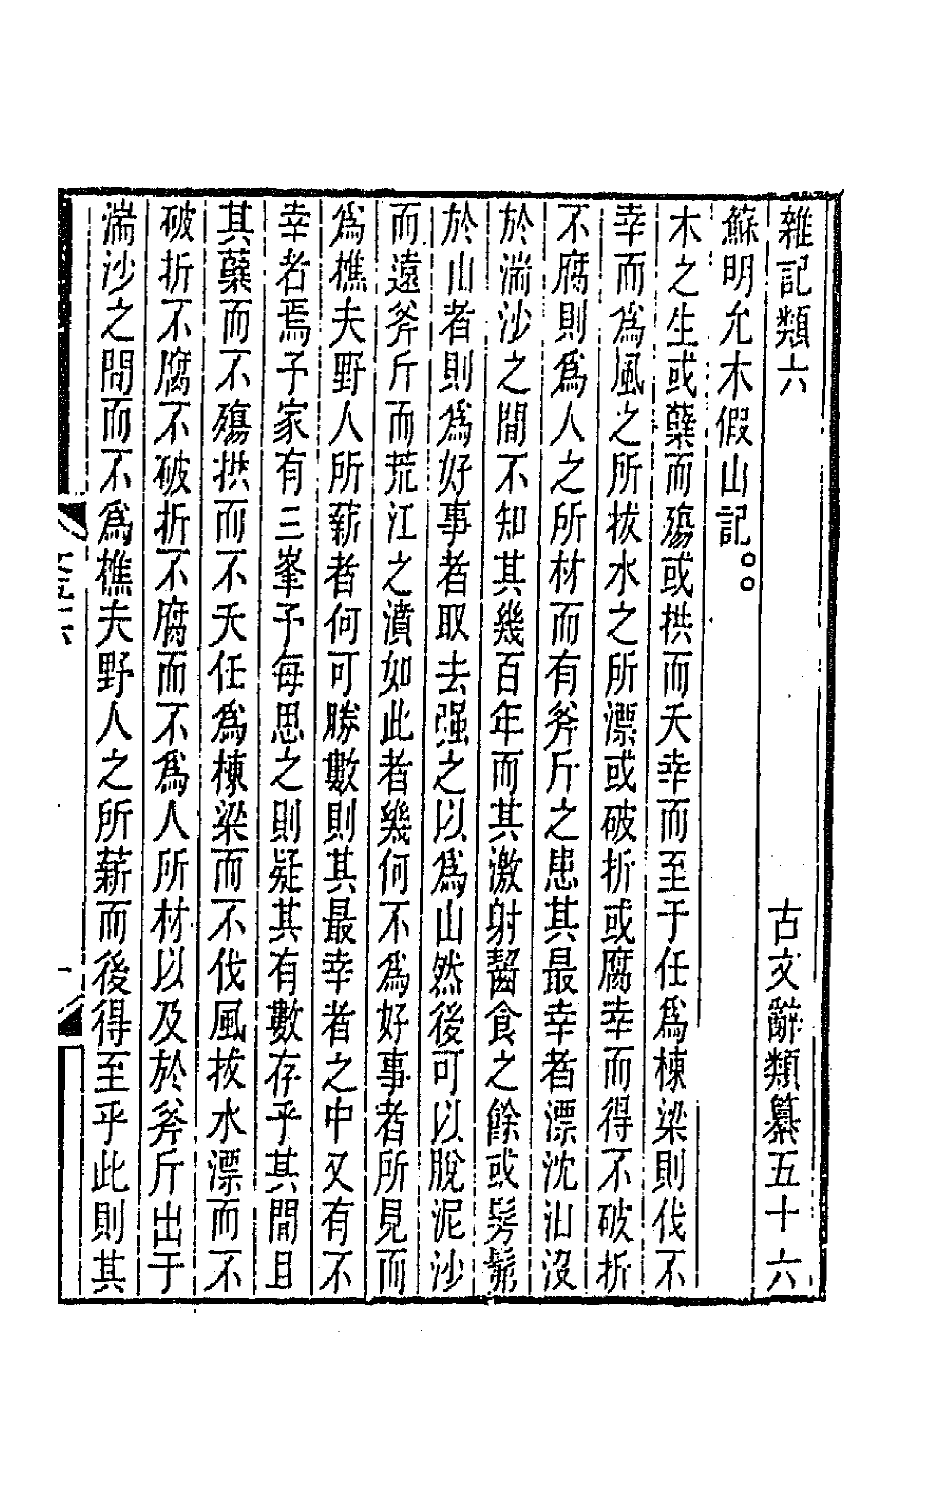 雜記類六　古文辭類纂五十六
蘇明允木假山記。。
木之生或蘖而殤或拱而夭幸而至于任爲棟梁則伐不
幸而爲風之所拔水之所漂或破折或腐幸而得不破折
不腐則爲人之所材而有斧斤之患其最幸者漂沈汩沒
於湍沙之間不知其幾百年而其激射齧食之餘或髣髴
於山者則爲好事者取去强之以爲山然後可以脫泥沙
而遠斧斤而荒江之濆如此者幾何不爲好事者所見而
爲樵夫野人所薪者何可勝數則其最幸者之中又有不
幸者焉予家有三峯予每思之則疑其有數存乎其間且
其蘖而不殤拱而不夭任爲棟梁而不伐風拔水漂而不
破折不腐不破折不腐而不爲人所材以及於斧斤出于
湍沙之間而不爲樵夫野人之所薪而後得至乎此則其